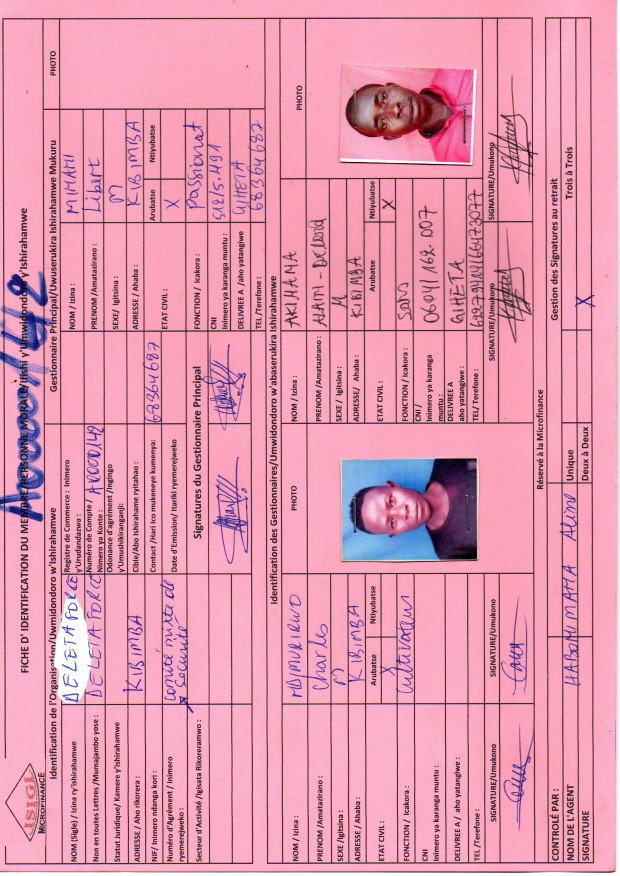 ISIGI
MICROFINANCE
A00001142
FICHE D' IDENTIFICATION DU MEMBRE/PERSONNE MORALE/Ifishi y'Umwidondoro y'Ishirahamwe
Identification de l'Organisation/Uwmidondoro w'Ishirahamwe
NOM (Sigle) / Izina ry'ishirahamwe
DELETAFORCE
Non en toutes Lettres /Munajambo yose :
DELETAFORCE
Statut Juridique/ Kamere y'ishirahamwe
ADRESSE / Aho rikorera :
KIBIMBA
NIF/ Inimero ndanga kori :
Numéro d'Agrément / Inimero ryemerejweko :
comité mixte de Sécurité
Secteur d'Activité /Igisata Rikoreramwo :
Registre de Commerce : Inimero y'Urudandazwa :
Numéro de Compte / Nimero ya Konte :
Odonance d'agrément /Ingingo y'Umushikiranganji:
Cible/Abo Ishirahame ryitahao :
Contact /Hari ico mukeneye kumenya:
68364687
Date d'Emission/ Itariki ryemerejweko
Signatures du Gestionnaire Principal
Gestionnaire Principal/Uwuserukira Ishirahamwe Mukuru
PHOTO
NOM / Izina :
PRENOM /Amatazirano :
Libert
SEXE/ Igitsina :
M
ADRESSE / Ahaba :
KIBIMBA
ETAT CIVIL :
Arubatse
Ntiyubatse
X
FONCTION / Icakora :
CNI
Inimero ya karanga muntu :
51215.491
DELIVREE A /aho yatangiwe
GIHETA
TEL /Terefone :
68364687
Identification des Gestionnaires/Umwidondoro w'abaserukira Ishirahamwe
NOM / Izina :
PRENOM /Amatazirano :
Charles
SEXE /Igitsina :
M
ADRESSE / Ahaba :
KIBIMBA
ETAT CIVIL :
Arubatse
Ntiyubatse
X
FONCTION / Icakora :
Cultivateur
CNI
Inimero ya karanga muntu :
DELIVREE A / aho yatangiwe :
TEL /Terefone :
SIGNATURE/Umukono
SIGNATURE/Umukono
PHOTO
NOM / Izina :
AKIMANA
PRENOM /Amatazirano :
SEXE / Igitsina :
M
ADRESSE/ Ahaba :
KIBIMBA
ETAT CIVIL :
Arubatse
Ntiyubatse
X
FONCTION / Icakora :
CNI /
Inimero ya karanga muntu :
DELIVREE A
aho yatangiwe :
GIHETA
TEL/ Terefone :
SIGNATURE/Umukono
SIGNATURE/Umukono
PHOTO
Réservé à la Microfinance
CONTROLÉ PAR :
NOM DE L'AGENT
HABONIMANA Aline
SIGNATURE
Gestion des Signatures au retrait
Unique
Deux à Deux
X
Trois à Trois